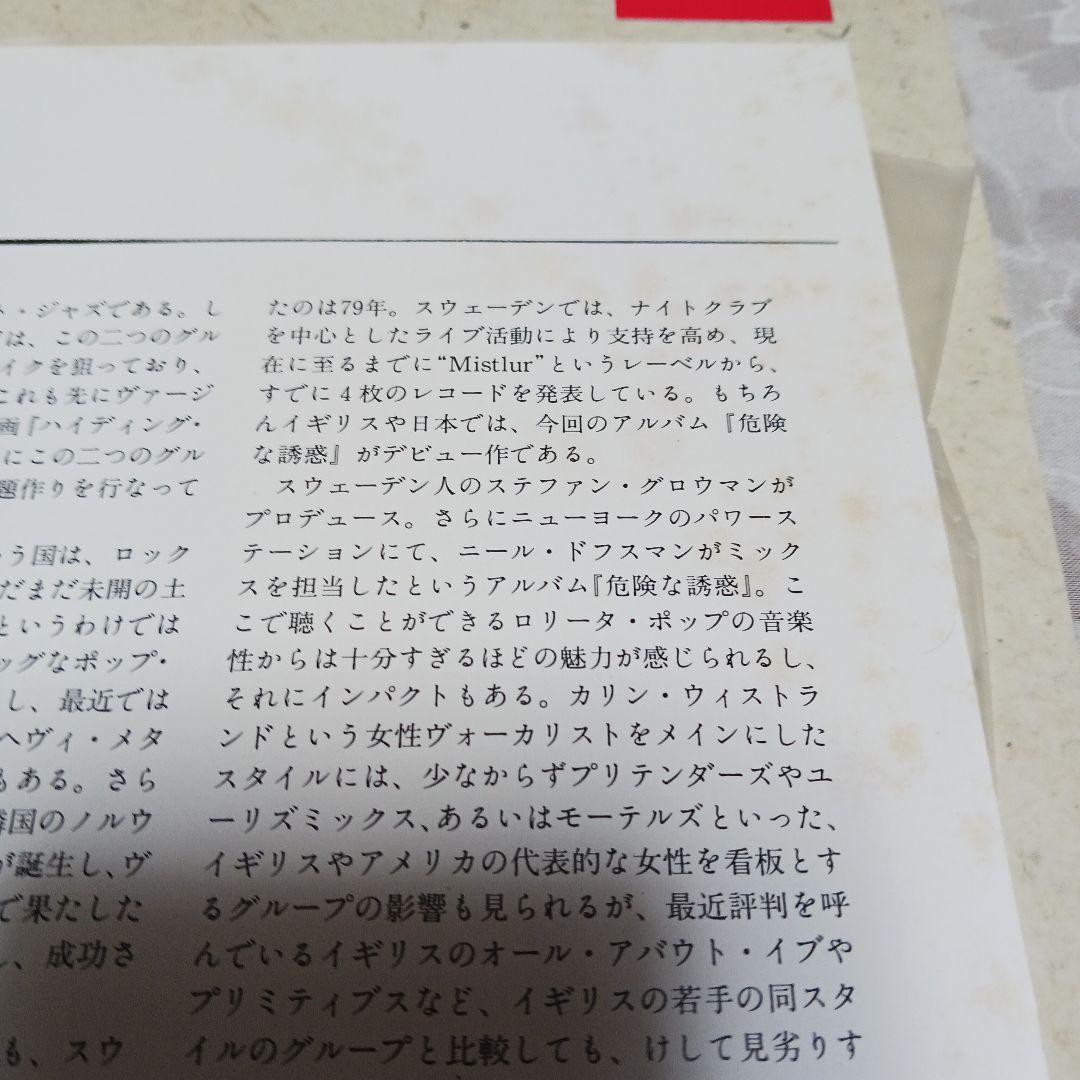 ネ・ジャズである。し
では、この二つのグル
イクを狙っており、
これも先にヴァージ
画『ハイディング・
にこの二つのグル
題作りを行なって
う国は、ロック
だまだ未開の土
というわけでは
ッグなポップ・
し、最近では
ヘヴィ・メタ
もある。さら
隣国のノルウ
が誕生し、ヴ
で果たした
、成功さ
も、スウ
たのは79年。スウェーデンでは、ナイトクラブ
を中心としたライブ活動により支持を高め、現
在に至るまでに“Mistlur”というレーベルから、
すでに4枚のレコードを発表している。もちろ
んイギリスや日本では、今回のアルバム『危険
な誘惑』がデビュー作である。
スウェーデン人のステファン・グロウマンが
プロデュース。さらにニューヨークのパワース
テーションにて、ニール・ドフスマンがミック
スを担当したというアルバム『危険な誘惑』。こ
こで聴くことができるロリータ・ポップの音楽
性からは十分すぎるほどの魅力が感じられるし、
それにインパクトもある。カリン・ウィストラ
ンドという女性ヴォーカリストをメインにした
スタイルには、少なからずプリテンダーズやユ
ーリズミックス、あるいはモーテルズといった、
イギリスやアメリカの代表的な女性を看板とす
るグループの影響も見られるが、最近評判を呼
んでいるイギリスのオール・アバウト・イブや
プリミティブスなど、イギリスの若手の同スタ
イルのグループと比較しても、けして見劣りす